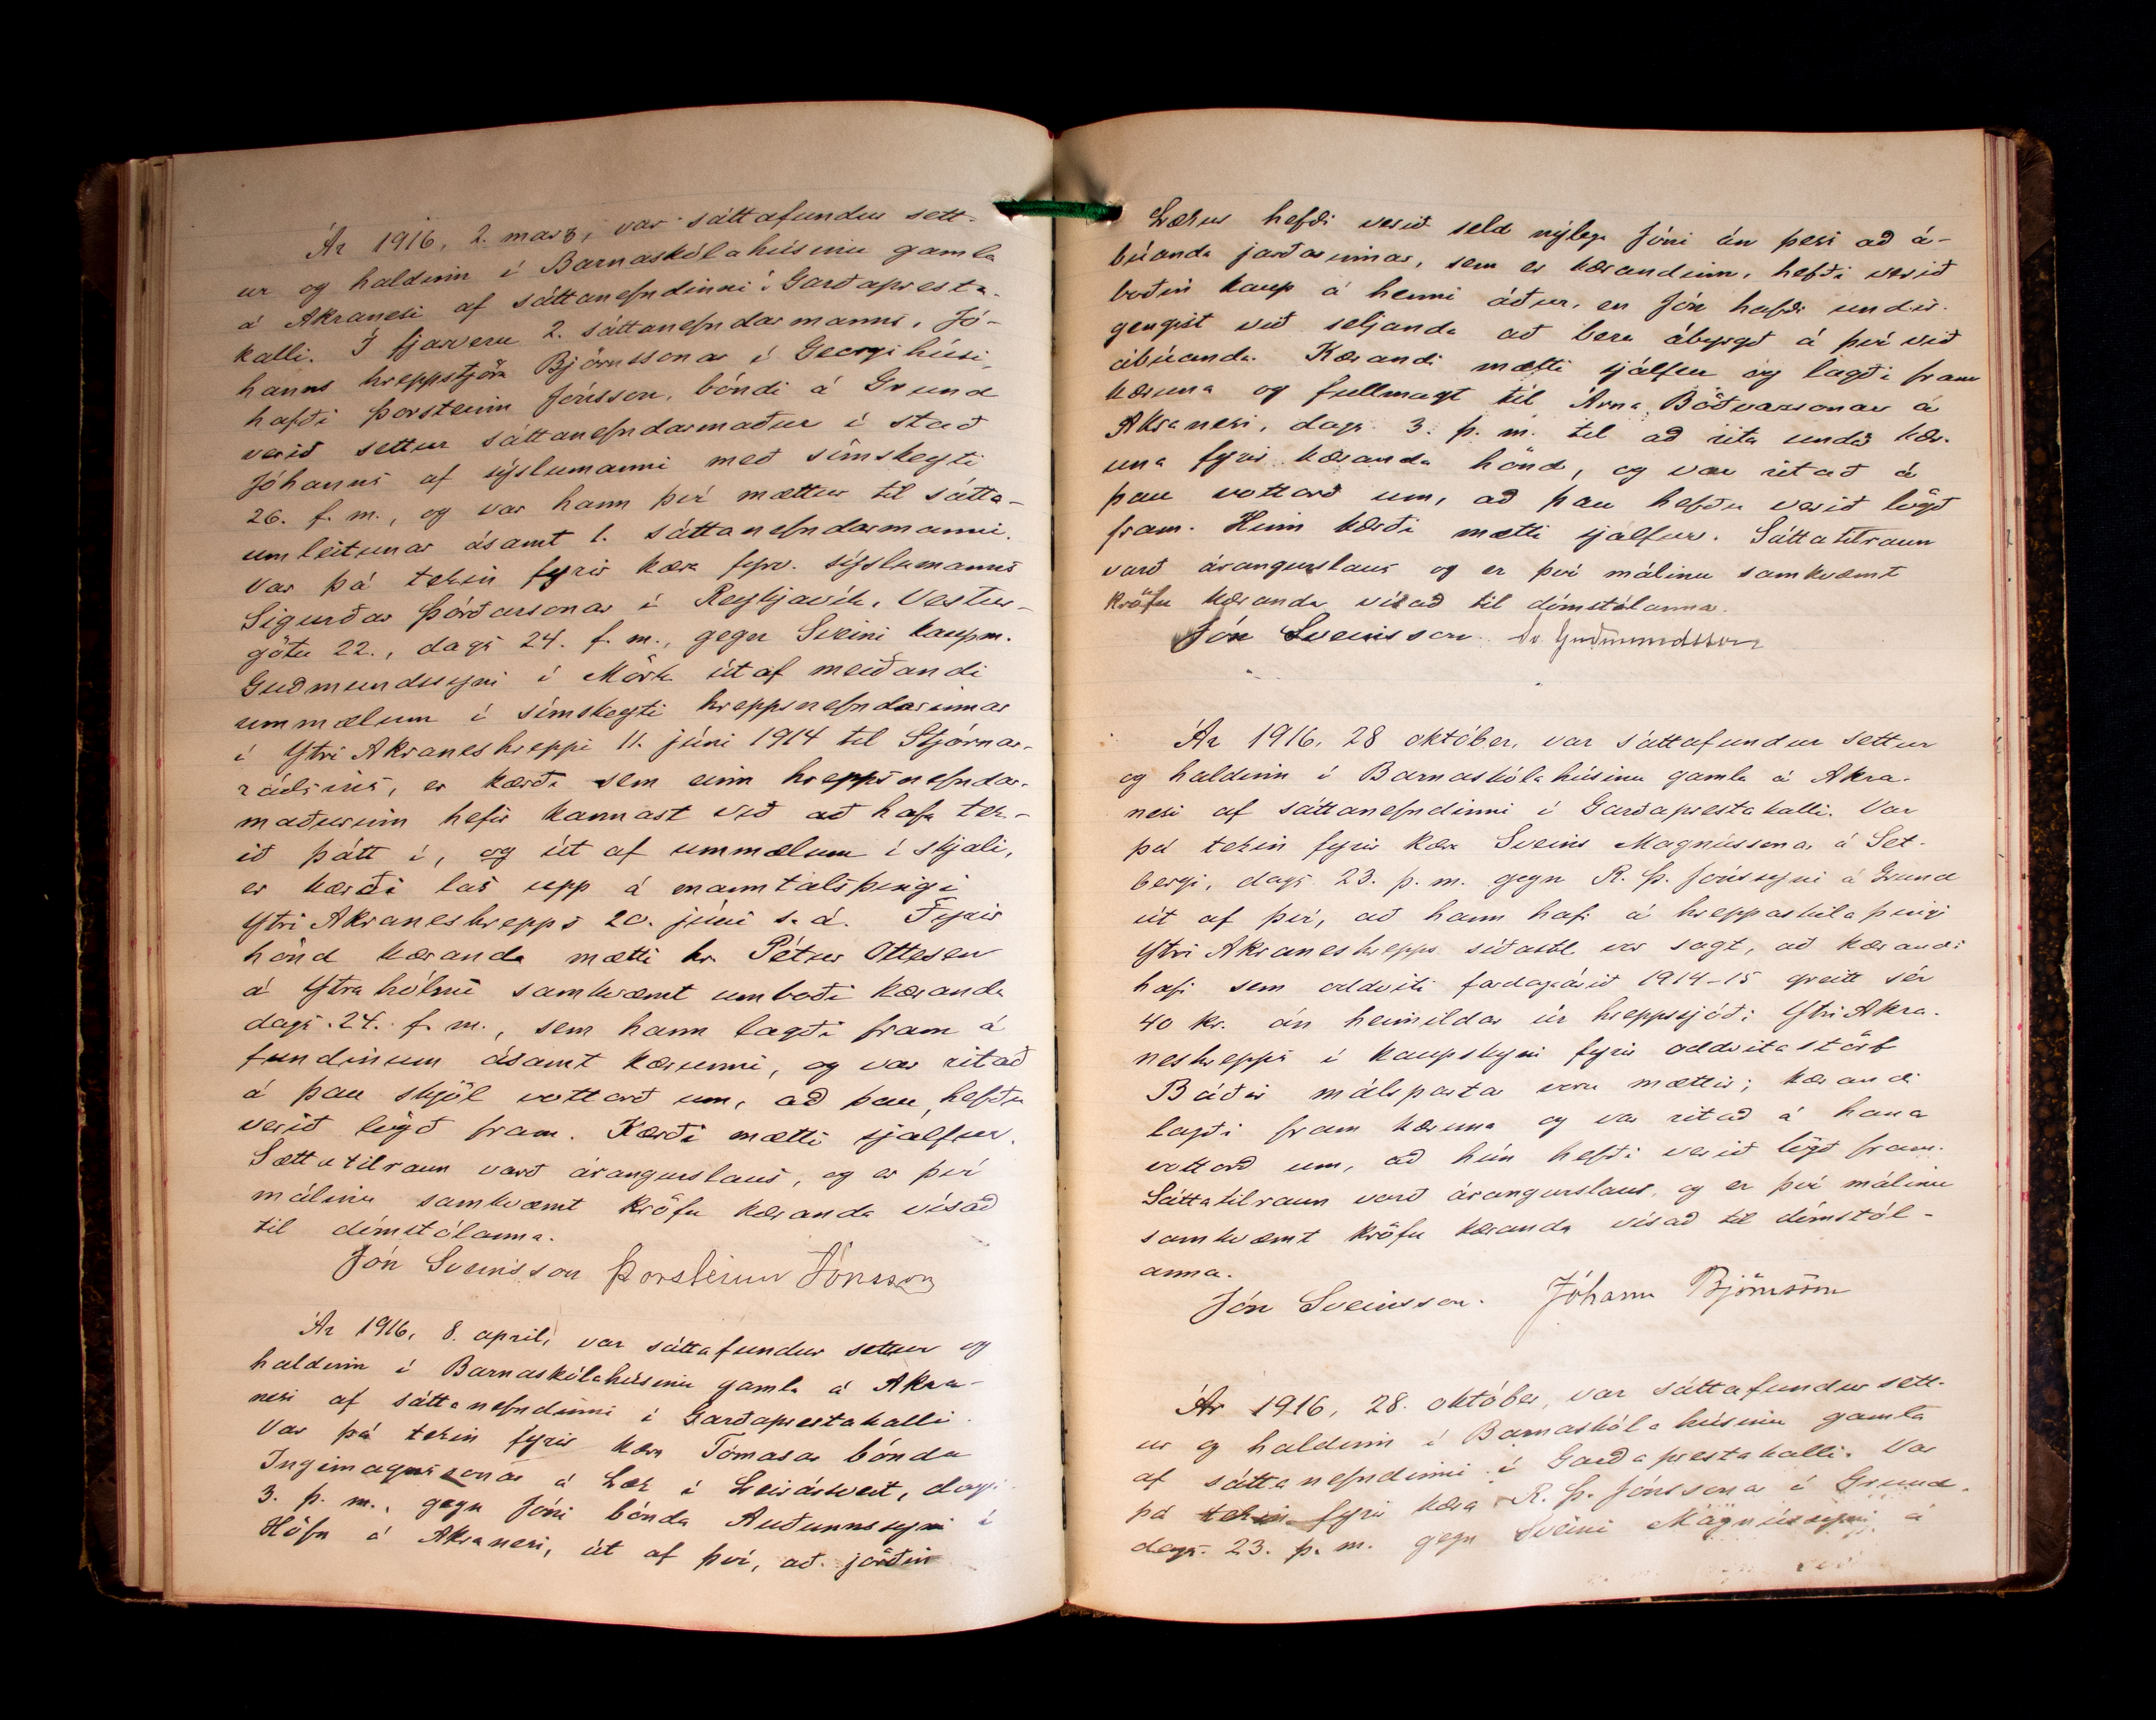 Ár 1916, 2. marz, var sáttafundur sett-
ur og haldinn í Barnaskólahúsinu gamla
á Akranesi af sáttanefndinni í Garðapresta-
kalli. Í fjarveru 2. sáttanefndarmanns, Jó-
hanns hreppstjóra Björnssonar í Georgshúsi,
hafði Þorsteinn Jónsson, bóndi á Grund
verið settur sáttanefndarmaður í stað
Jóhanns af sýslumanni með símskeyti
26. f. m., og var hann því mættur til sátta-
umleitunar ásamt 1. sáttanefndarmanni.
Var þá tekin fyrir kæra fyrv. sýslumanns
Sigurðar Þórðarsonar í Reykjavík, Vestur-
götu 22., dags. 24. f. m., gegn Sveini kaupm.
Guðmundssyni í Mörk út af meiðandi
ummælum í símskeyti hreppsnefndarinnar
í Ytri Akraneshreppi 11. júní 1914 til Stjórnar-
ráðsins, er kærði sem einn hreppsnefndar-
maðurinn hefir kannast við að hafa tek-
ið þátt í, og út af ummælum í skjali,
er kærði las upp á manntalsþingi
Ytri Akraneshrepps 20. júní s. á. Fyrir
hönd kæranda mætti hr. Pétur Ottesen
á Ytra hólmi samkvæmt umboði kæranda
dags. 24. f. m., sem hann lagði fram á
fundinum ásamt kærunni, og var ritað
á þau skjöl vottorð um, að þau hefðu
verið lögð fram. Kærði mætti sjálfur.
Sáttatilraun varð árangurslaus, og er því
málinu samkvæmt kröfu kæranda vísað
til dómstólanna.
Jón Sveinsson Þorsteinn Jónsson
Ár 1916, 8. apríl, var sáttafundur settur og
haldinn í Barnaskólahúsinu gamla á Akra-
nesi af sáttanefndinni í Garðaprestakalli.
Var þá tekin fyrir kæra Tómasar bónda
Ingimagnssonar á Læk í Leirársveit, dags.
3. þ. m., gegn Jóni bónda Auðunnssyni í
Höfn á Akranesi, út af því, að jörðin
Lækur hefði verið seld nýlega Jóni án þess að á-
búanda jarðarinnar, sem er kærandinn, hefði verið
boðin kaup á henni áður, en Jón hafði undir-
gengist við seljanda að bera ábyrgð á því við
ábúanda. Kærandi mætti sjálfur og lagði fram
kæruna og fullmagt til Árna Böðvarssonar á
Akranesi, dags. 3. þ. m. til að rita undir kær-
una fyrir kæranda hönd, og var ritað á
þau vottorð um, að þau hefðu verið lögð
fram. Hinn kærði mætti sjálfur. Sáttatilraun
varð árangurslaus og er því málinu samkvæmt
kröfu kæranda vísað til dómstólanna.
Jón Sveinsson. Sv. Guðmundsson
Ár 1916, 28 október, var sáttafundur settur
og haldinn í Barnaskólahúsinu gamla á Akra-
nesi af sáttanefndinni í Garðaprestakalli. Var
þá tekin fyrir kæra Sveins Magnússonar á Set-
bergi, dags. 23. þ. m. gegn R. Þ. Jónssyni á Grund
út af því, að hann hafi á hreppaskilaþingi
Ytri Akraneshrepps síðastl. vor sagt, að kærandi
hafi sem oddviti fardagaárið 1914-15 greitt sér
40 kr. án heimildar úr hreppssjóði Ytri Akra-
neshrepps í kaupskyni fyrir oddvitastörf
Báðir málsparta voru mættir; kærandi
lagði fram kæruna og var ritað á hana
vottorð um, að hún hefði verið lögð fram.
Sáttatilraun varð árangurslaus, og er því málinu
samkvæmt kröfu kæranda vísað til dómstól-
anna.
Jón Sveinsson. Jóhann Björnsson
Ár 1916, 28. október, var sáttafundur sett-
ur og haldinn í Barnaskólahúsinu gamla
af sáttanefndinni í Garðaprestakalli. Var
þá tekin fyrir kæra R. Þ. Jónssonar á Grund,
dags. 23. þ. m. gegn Sveini Magnússyni á